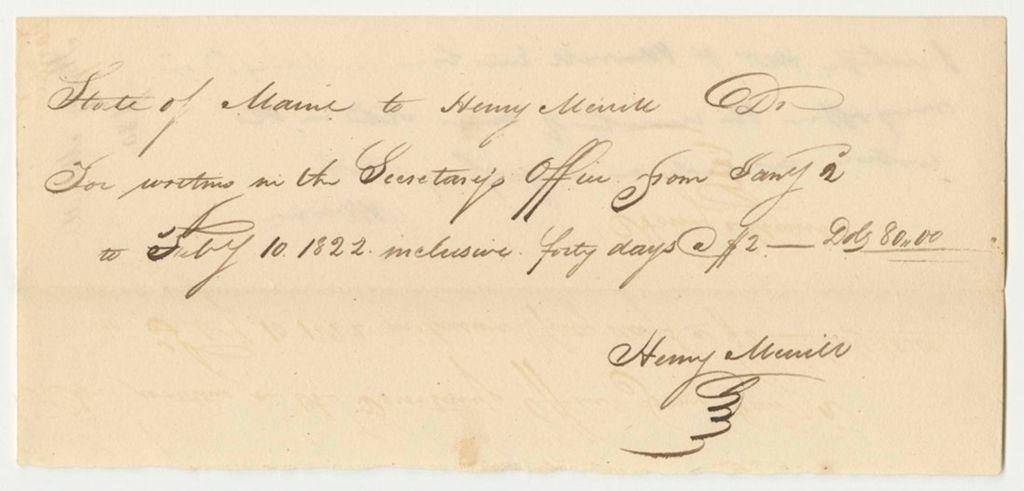 State of Maine to Henry Merrill Dr
For writing in the Secretary's Office from Jany 2
to Feby 10. 1822. inclusive. forty days @ $2 — Dols 80.00
Henry Merrill